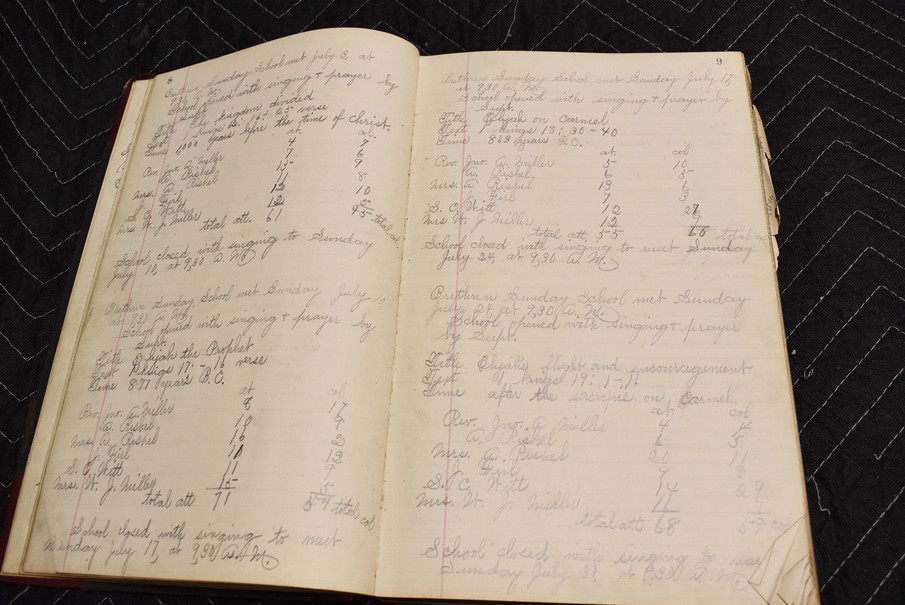 8
Brethren Sunday School met July 3 at
9,30 A. M.
School opened with singing + prayer by
Supt.
Title The kingdom divided
Text 1 kings 12: 16-25 verse
Time 1000 years before the time of Christ.
at. col.
Rev. Jno. A. Miller 4 7
A. Riskel 7 6
Mrs. A. Riskel 15 9
J. Firl 11 8
S. C. Witt 12 10
Mrs. W. J. Miller 12 5
total att. 61 45 total col.
School closed with singing to Sunday
July 10, at 9,30 A. M.
Brethren Sunday School met Sunday July 10
at 9,30 A. M.
School opened with singing + prayer by
Supt.
Title Elijah the Prophet
Text 1 kings 17: 1-16 verse
Time 877 years B.C.
at. col
Rev. Jno. A. Miller 8 17
A. Riskel 10 9
Mrs. A. Riskel 16 2
J. Firl 11 12
S. C. Witt 11 9
Mrs. W. J. Miller 15 5
total att 71 54 total col.
School closed with singing to meet
Sunday July 17, at 9,30 A. M.
9
Brethren Sunday School met Sunday July 17,
at 9,30 A. M.
School opened with singing + prayer by
Supt.
Title Elijah on carmel
Text 1 kings 18: 30-40
Time 863 years B.C.
at. col
Rev. Jno. A. Miller 5 10
A. Riskel 6 5
Mrs. A. Riskel 13 6
J. Firl 7 3
S. C. Witt 12 27
Mrs W. J. Miller 12 9
total att, 55 60 total col
School closed with singing to meet Sunday
July 24, at 9,30 A. M.
Brethren Sunday School met Sunday
July 24, at 9,30 A. M.
School opened with singing + prayer
by Supt.
Title Elijahs flight and encouragement
Text 1 kings 19: 1-16
Time after the sacrifice on Carmel
at. col
Rev. Jno. A. Miller 4 4
A. Riskel 6 5
Mrs. A. Riskel 20 11
J. Firl 9
S. C. Witt 14 24
Mrs. W. J. Miller
total att 68 59 col
School closed with singing to meet
Sunday July 31, at 9,30 A. M.